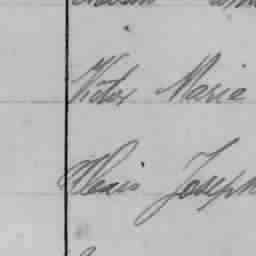 Victor Marie
Alexis Joseph